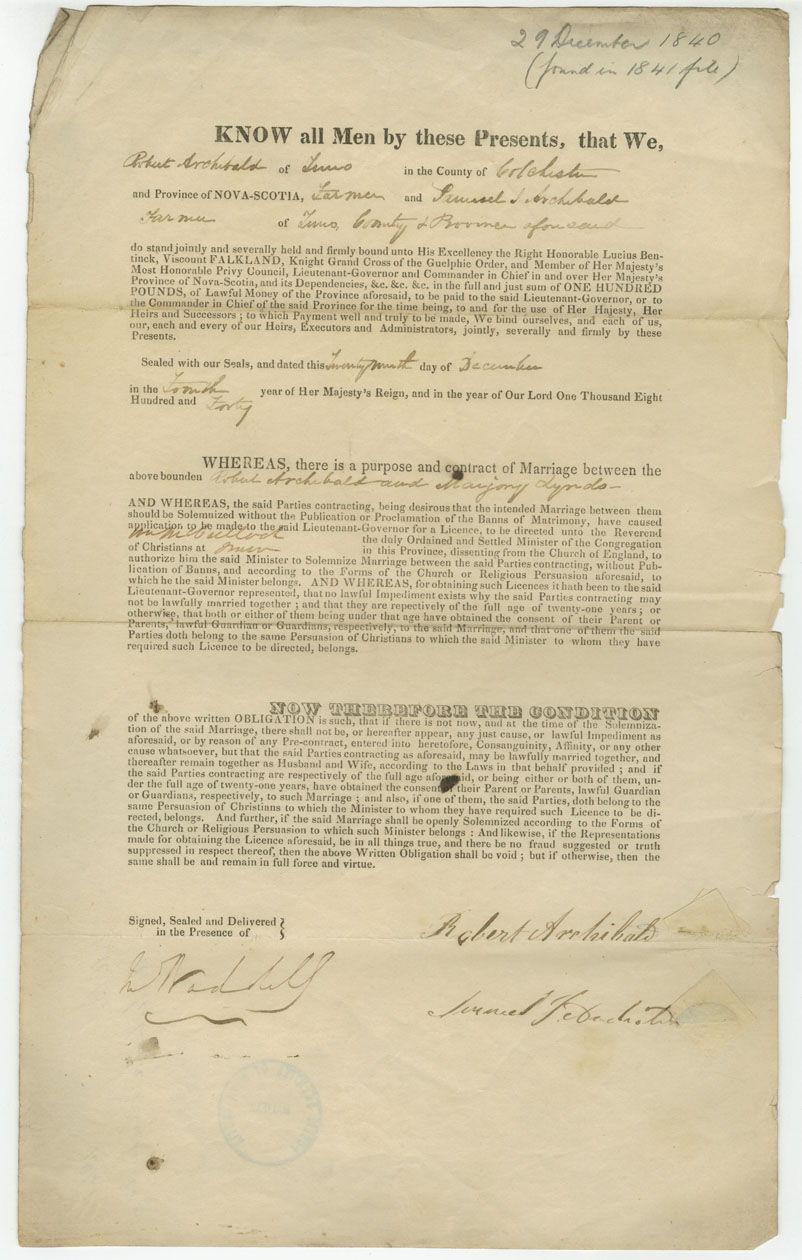 29 December 1840
(found in 1841 file)
KNOW all Men by these Presents, that We,
Robert Archibald of Truro in the County of Colchester
and Province of NOVA-SCOTIA, Farmer and Samuel J Archibald
Farmer of Truro, County & Province aforesaid
do stand jointly and severally held and firmly bound unto His Excellency the Right Honorable Lucius Ben-
tinck, Viscount FALKLAND, Knight Grand Cross of the Guelphic Order, and Member of Her Majesty's
Most Honorable Privy Council, Lieutenant-Governor and Commander in Chief in and over Her Majesty's
Province of Nova-Scotia, and its Dependencies, &c. &c. &c. in the full and just sum of ONE HUNDRED
POUNDS, of Lawful Money of the Province aforesaid, to be paid to the said Lieutenant-Governor, or to
the Commander in Chief of the said Province for the time being, to and for the use of Her Hajesty, Her
Heirs and Successors ; to which Payment well and truly to be made, We bind ourselves, and each of us,
our, each and every of our Heirs, Executors and Administrators, jointly, severally and firmly by these
Presents.
Sealed with our Seals, and dated this Twenty ninth day of December
in the Fourth year of Her Majesty's Reign, and in the year of Our Lord One Thousand Eight
Hundred and Forty
WHEREAS, there is a purpose and contract of Marriage between the
above bounden Robert Archibald and Marjory Lynds
AND WHEREAS, the said Parties contracting, being desirous that the intended Marriage between them
should be Solemnized without the Publication or Proclamation of the Banns of Matrimony, have caused
application to be made to the said Lieutenant-Governor for a Licence, to be directed unto the Reverend
Wm McCulloch the duly Ordained and Settled Minister of the Congregation
of Christians at Truro in this Province, dissenting from the Church of England, to
authorize him the said Minister to Solemnize Marriage between the said Parties contracting, without Pub-
lication of Banns, and according to the Forms of the Church or Religious Persuasion aforesaid, to
which he the said Minister belongs. AND WHEREAS, for obtaining such Licences it hath been to the said
Lieutenant-Governor represented, that no lawful Impediment exists why the said Parties contracting may
not be lawfully married together ; and that they are repectively of the full age of twenty-one years ; or
otherwise, that both or either of them being under that age have obtained the consent of their Parent or
Parents, lawful Guardian or Guardians, respectively, to the said Marriage, and that one of them the said
Parties doth belong to the same Persuasion of Christians to which the said Minister to whom they have
required such Licence to be directed, belongs.
NOW THEREFORE THE CONDITION
of the above written OBLIGATION is such, that if there is not now, and at the time of the Solemniza-
tion of the said Marriage, there shall not be, or hereafter appear, any just cause, or lawful Impediment as
aforesaid, or by reason of any Pre-contract, entered into heretofore, Consanguinity, Affinity, or any other
cause whatsoever, but that the said Parties contracting as aforesaid, may be lawfully married together, and
thereafter remain together as Husband and Wife, according to the Laws in that behalf provided ; and if
the said Parties contracting are respectively of the full age aforesaid, or being either or both of them, un-
der the full age of twenty-one years, have obtained the consent of their Parent or Parents, lawful Guardian
or Guardians, respectively, to such Marriage ; and also, if one of them, the said Parties, doth belong to the
same Persuasion of Christians to which the Minister to whom they have required such Licence to be di-
rected, belongs. And further, if the said Marriage shall be openly Solemnized according to the Forms of
the Church or Religious Persuasion to which such Minister belongs : And likewise, if the Representations
made for obtaining the Licence aforesaid, be in all things true, and there be no fraud suggested or truth
suppressed in respect thereof, then the above Written Obligation shall be void ; but if otherwise, then the
same shall be and remain in full force and virtue.
Signed, Sealed and Delivered
in the Presence of
Robert Archibald
Waddell
Samuel J Archibald